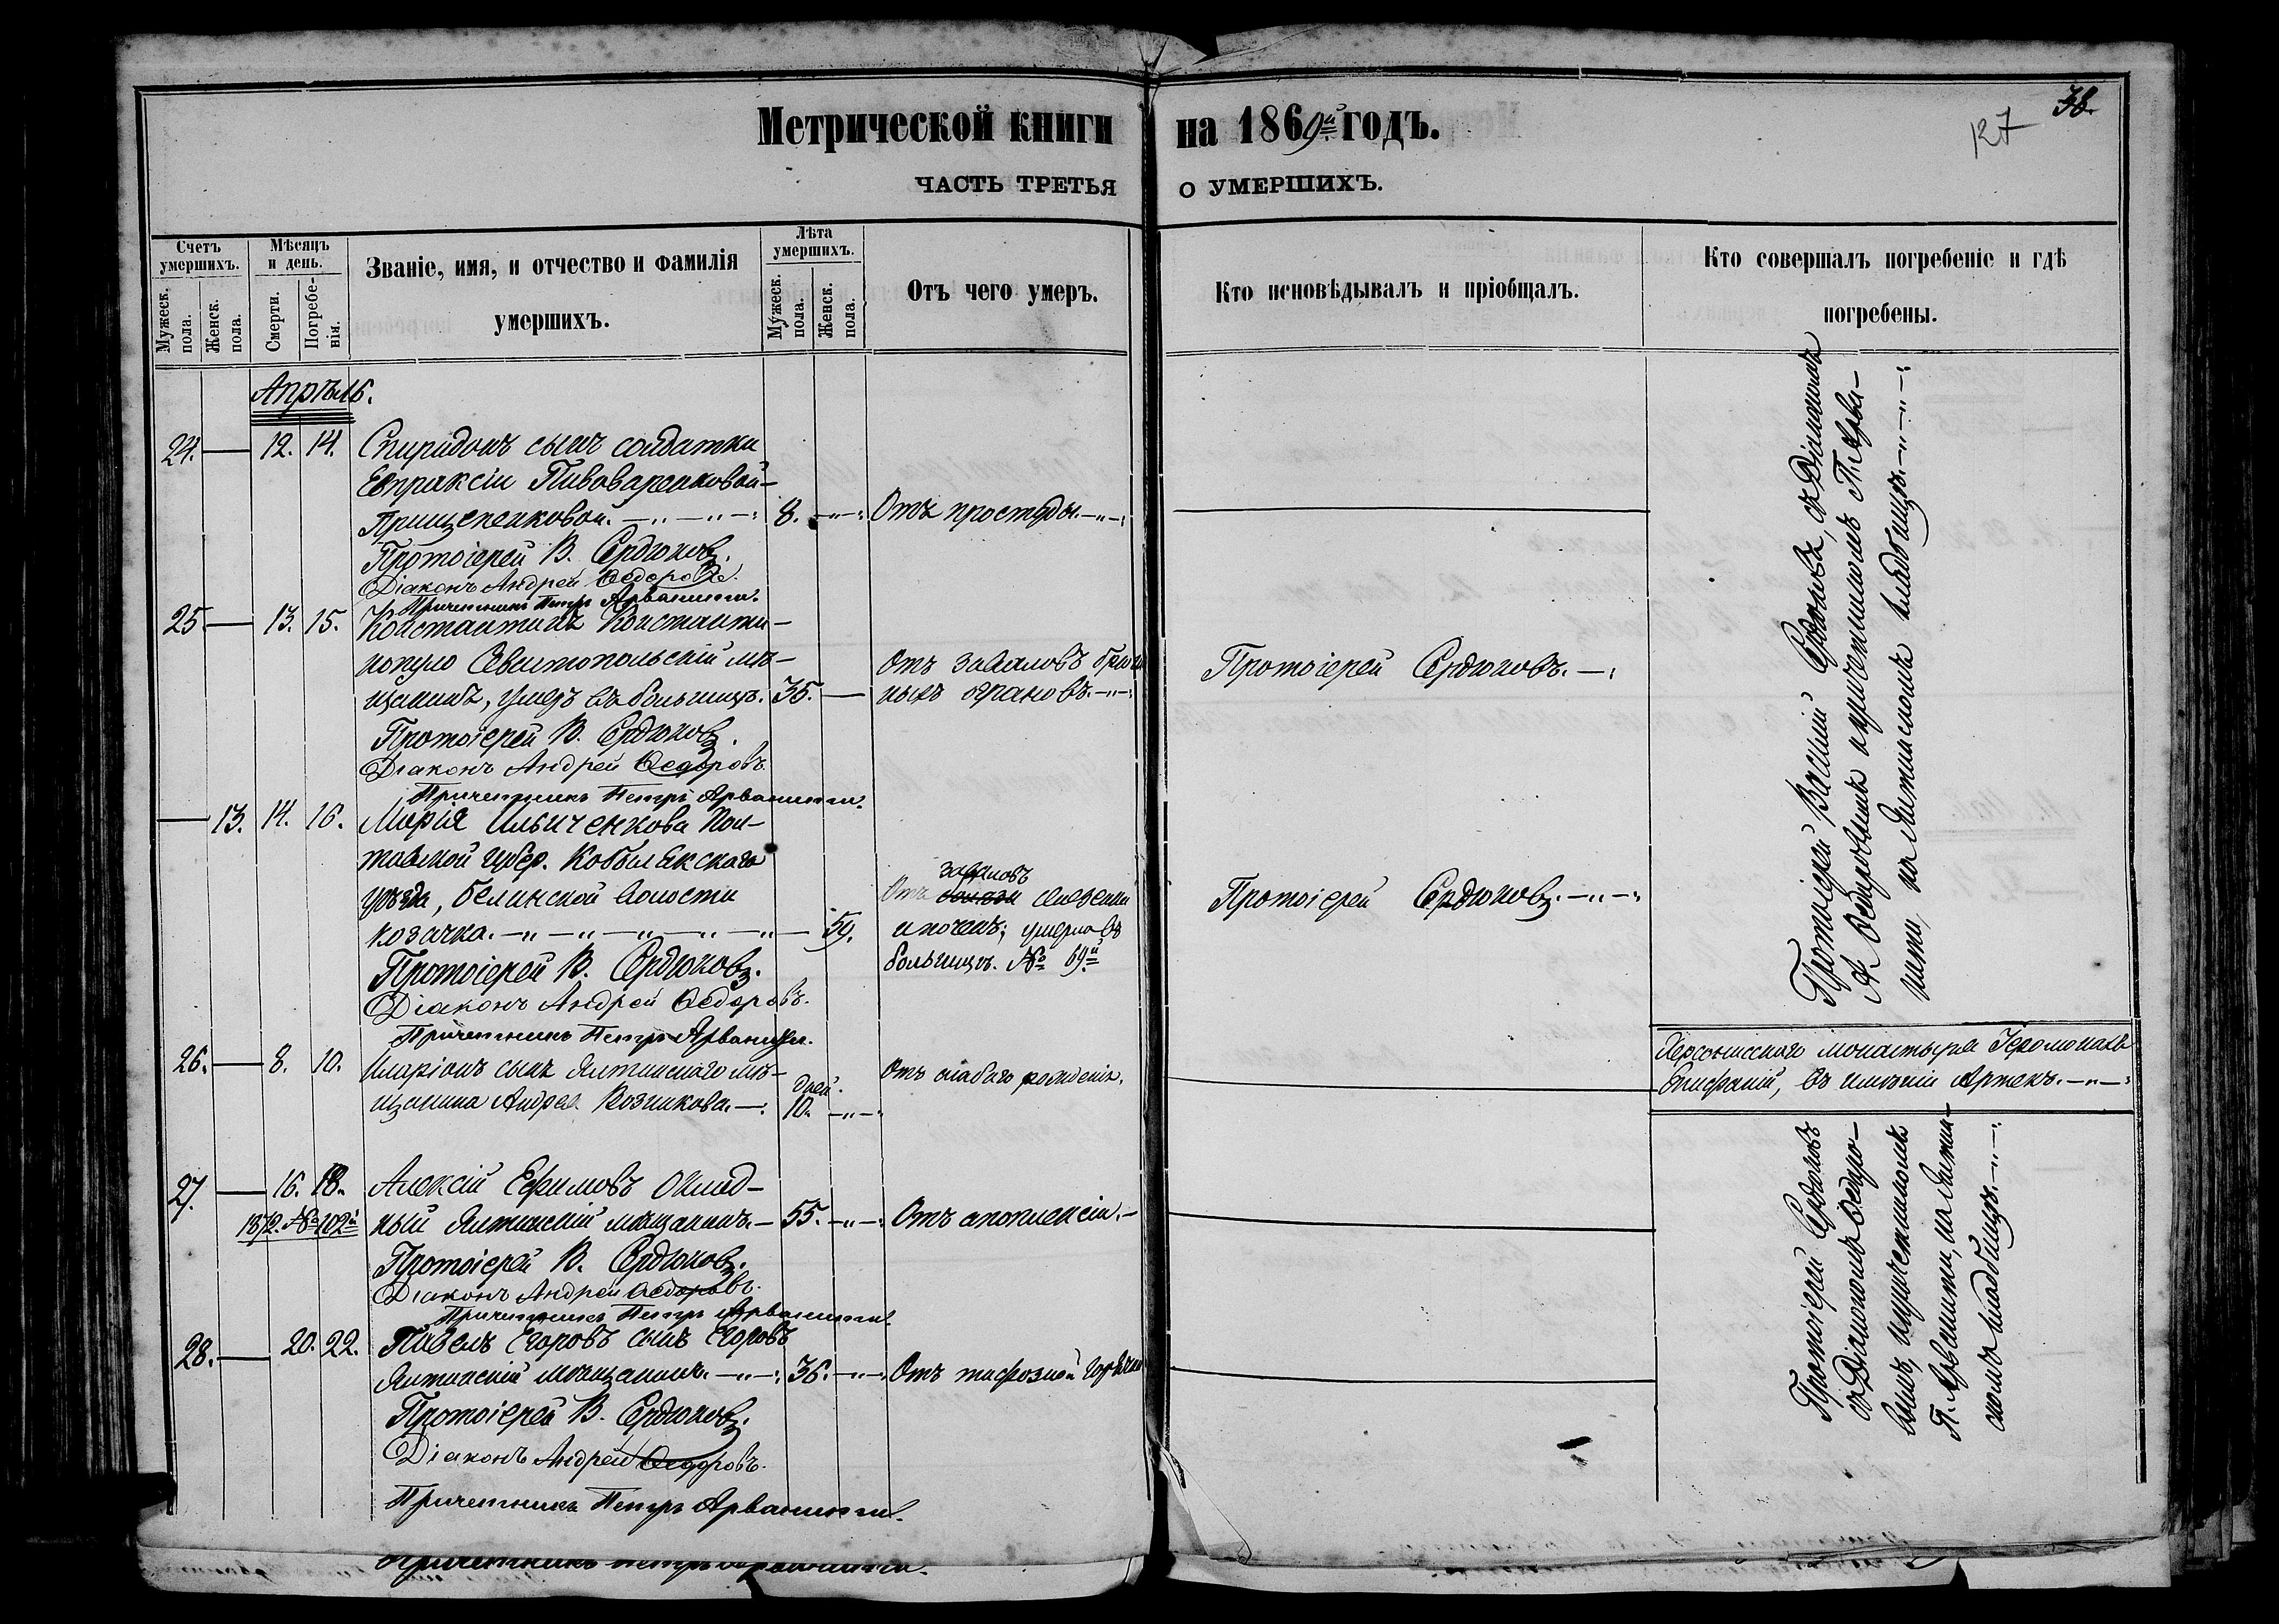 Метрической книги на 1869й годъ.
38.
127
ЧАСТЬ ТРЕТЬЯ О УМЕРШИХЪ.
Счетъ умершихъ.
Мужеск. пола.
Женск. пола.
Мѣсяцъ и день.
Смерти.
Погребе-нія.
Званіе, имя, и отчество и фамилія
умершихъ.
Лѣта умершихъ.
Мужеск. пола.
Женск. пола.
Отъ чего умеръ.
Кто исповѣдывалъ и пріобщалъ.
Кто совершалъ погребеніе и гдѣ
погребены.
Апрѣль.
24. — 12. 14. Спиридонъ сынъ солдатки
Евпраксіи Пивоваренковой-
Прищепенковой. 8. Отъ простуды.
Протоіерей В. Сердюковъ.
Діаконъ Андрей Ѳедоровъ.
Причетникъ Петръ Арванити.
25. — 13. 15. Константинъ Константи-
нопуло Севастополскій мѣ-
щанинъ, умеръ въ больницѣ. 35. —
Отъ заваловъ брюш
ныхъ органовъ.
Протоіерей Сердюковъ.
Протоіерей В. Сердюковъ.
Діаконъ Андрей Ѳедоровъ.
Причетникъ Петръ Арванити.
— 13. 14. 16. Марія Ильиченкова Пол-
тавской губер. Кобылякскаго
уѣзда, Беликской волости
козачка. — 59.
Отъ заваловъ селезенки
и почекъ; умерла въ
больницѣ. № 69й
Протоіерей Сердюковъ.
Протоіерей В. Сердюковъ.
Діаконъ Андрей Ѳедоровъ.
Причетникъ Петръ Арванити.
Протоіерей Василій Сердюковъ, съ Діакономъ
А. Ѳедоровымъ и причетникомъ П. Арва-
нити, на Ялтинскомъ кладбищѣ.
26. — 8. 10. Иларіонъ сынъ Ялтинскаго мѣ-
щанина Андрея Возникова. дней 10.
Отъ слабаго рожденія.
Херсонисскаго монастыря Іеромонахъ
Епифаній, въ имѣніи Артекъ.
27. — 16. 18. Алексій Ефимовъ
1872. № 102й
ный Ялтинскій мѣщанинъ. 55. Отъ апоплексіи.
Протоіерей В. Сердюковъ.
Діаконъ Андрей Ѳедоровъ.
Причетникъ Петръ Арванити.
28. — 20. 22. Павелъ Егоровъ сынъ Егоровъ
Ялтинскій мѣщанинъ. 36. Отъ тифозной горячки
Протоіерей В. Сердюковъ.
Діаконъ Андрей Ѳедоровъ.
Причетникъ Петръ Арванити.
Протоіерей Сердюковъ
съ Діакономъ Ѳедоро-
вымъ, и причетникомъ
П. Арванити, на Ялтин-
скомъ кладбищѣ.
Причетникъ Петръ Арванити.